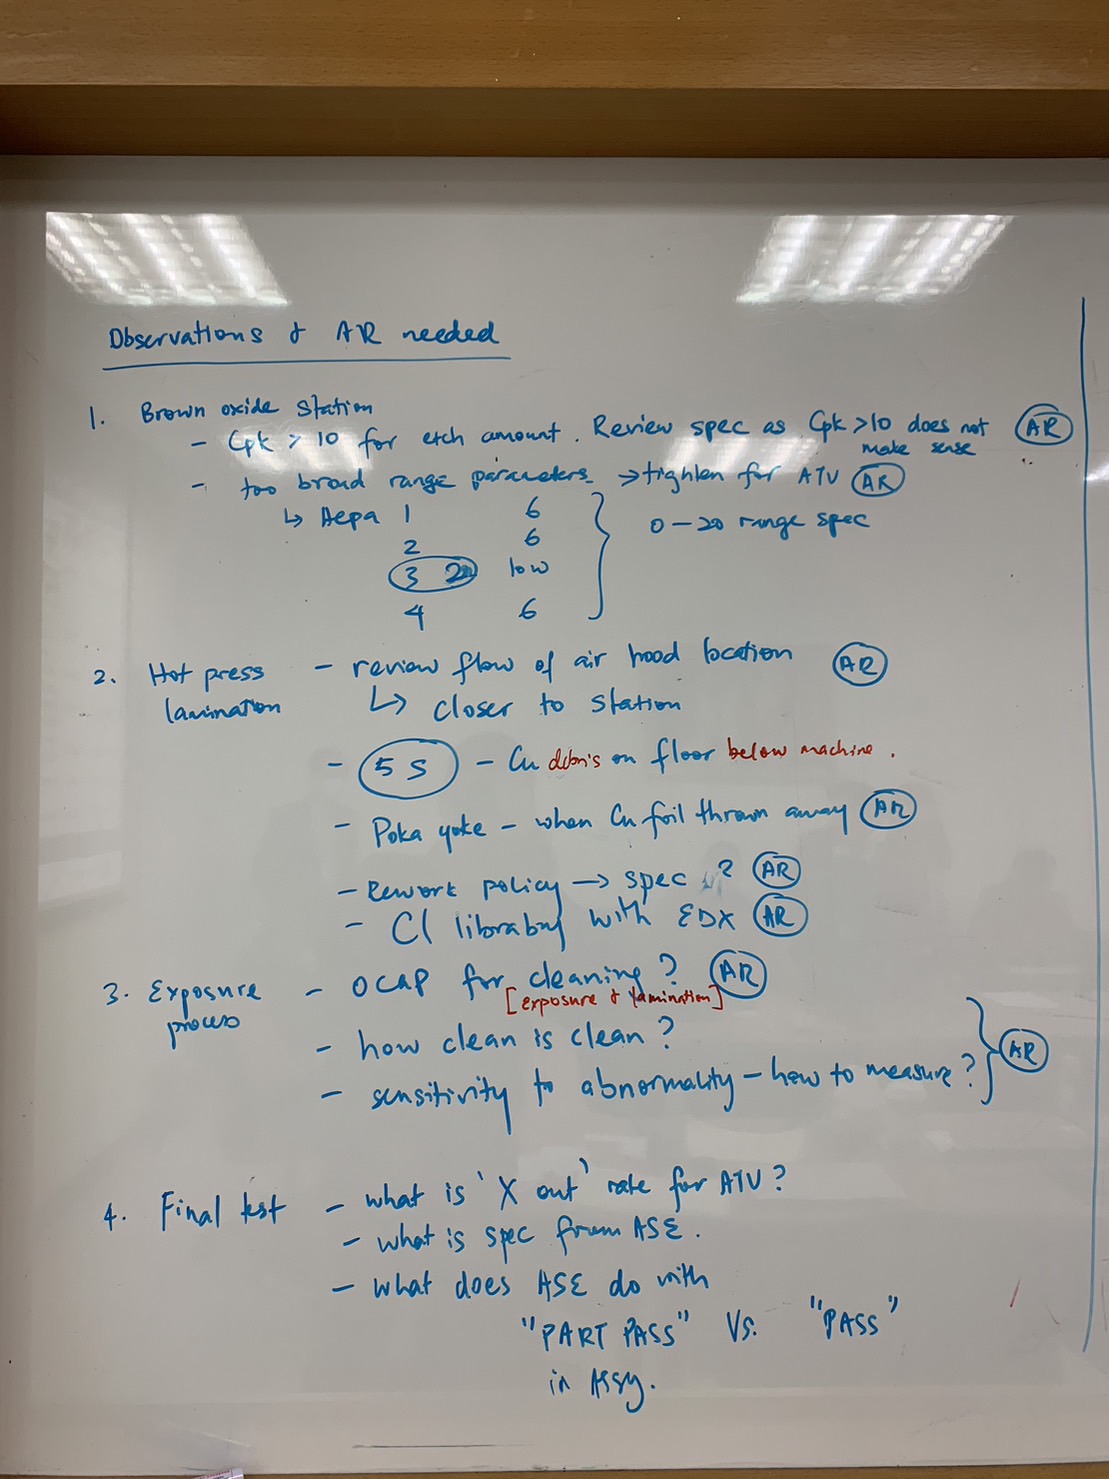 Observations & AR needed
1. Brown oxide station
- Cpk > 10 for etch amount. Review spec as Cpk >10 does not make sense AR
- too broad range parameters → tighten for ATV AR
↳ 1 6
2 6 0 – 20 range spec
3 low
4 6
2. Hot press lamination - review flow of air hood location AR
↳ closer to station
- 5 S - Cu debris on floor below machine.
- Poka yoke - when Cu foil thrown away AR
- Rework policy → spec ? AR
- Cl librabry with EDX AR
3. Exposure process - OCAP for cleaning? AR
[exposure & lamination]
- how clean is clean?
- sensitivity to abnormality - how to measure? AR
4. Final test - what is 'X out' rate for ATV?
- what is spec from ASE.
- what does ASE do with
"PART PASS" Vs. "PASS"
in Assy.